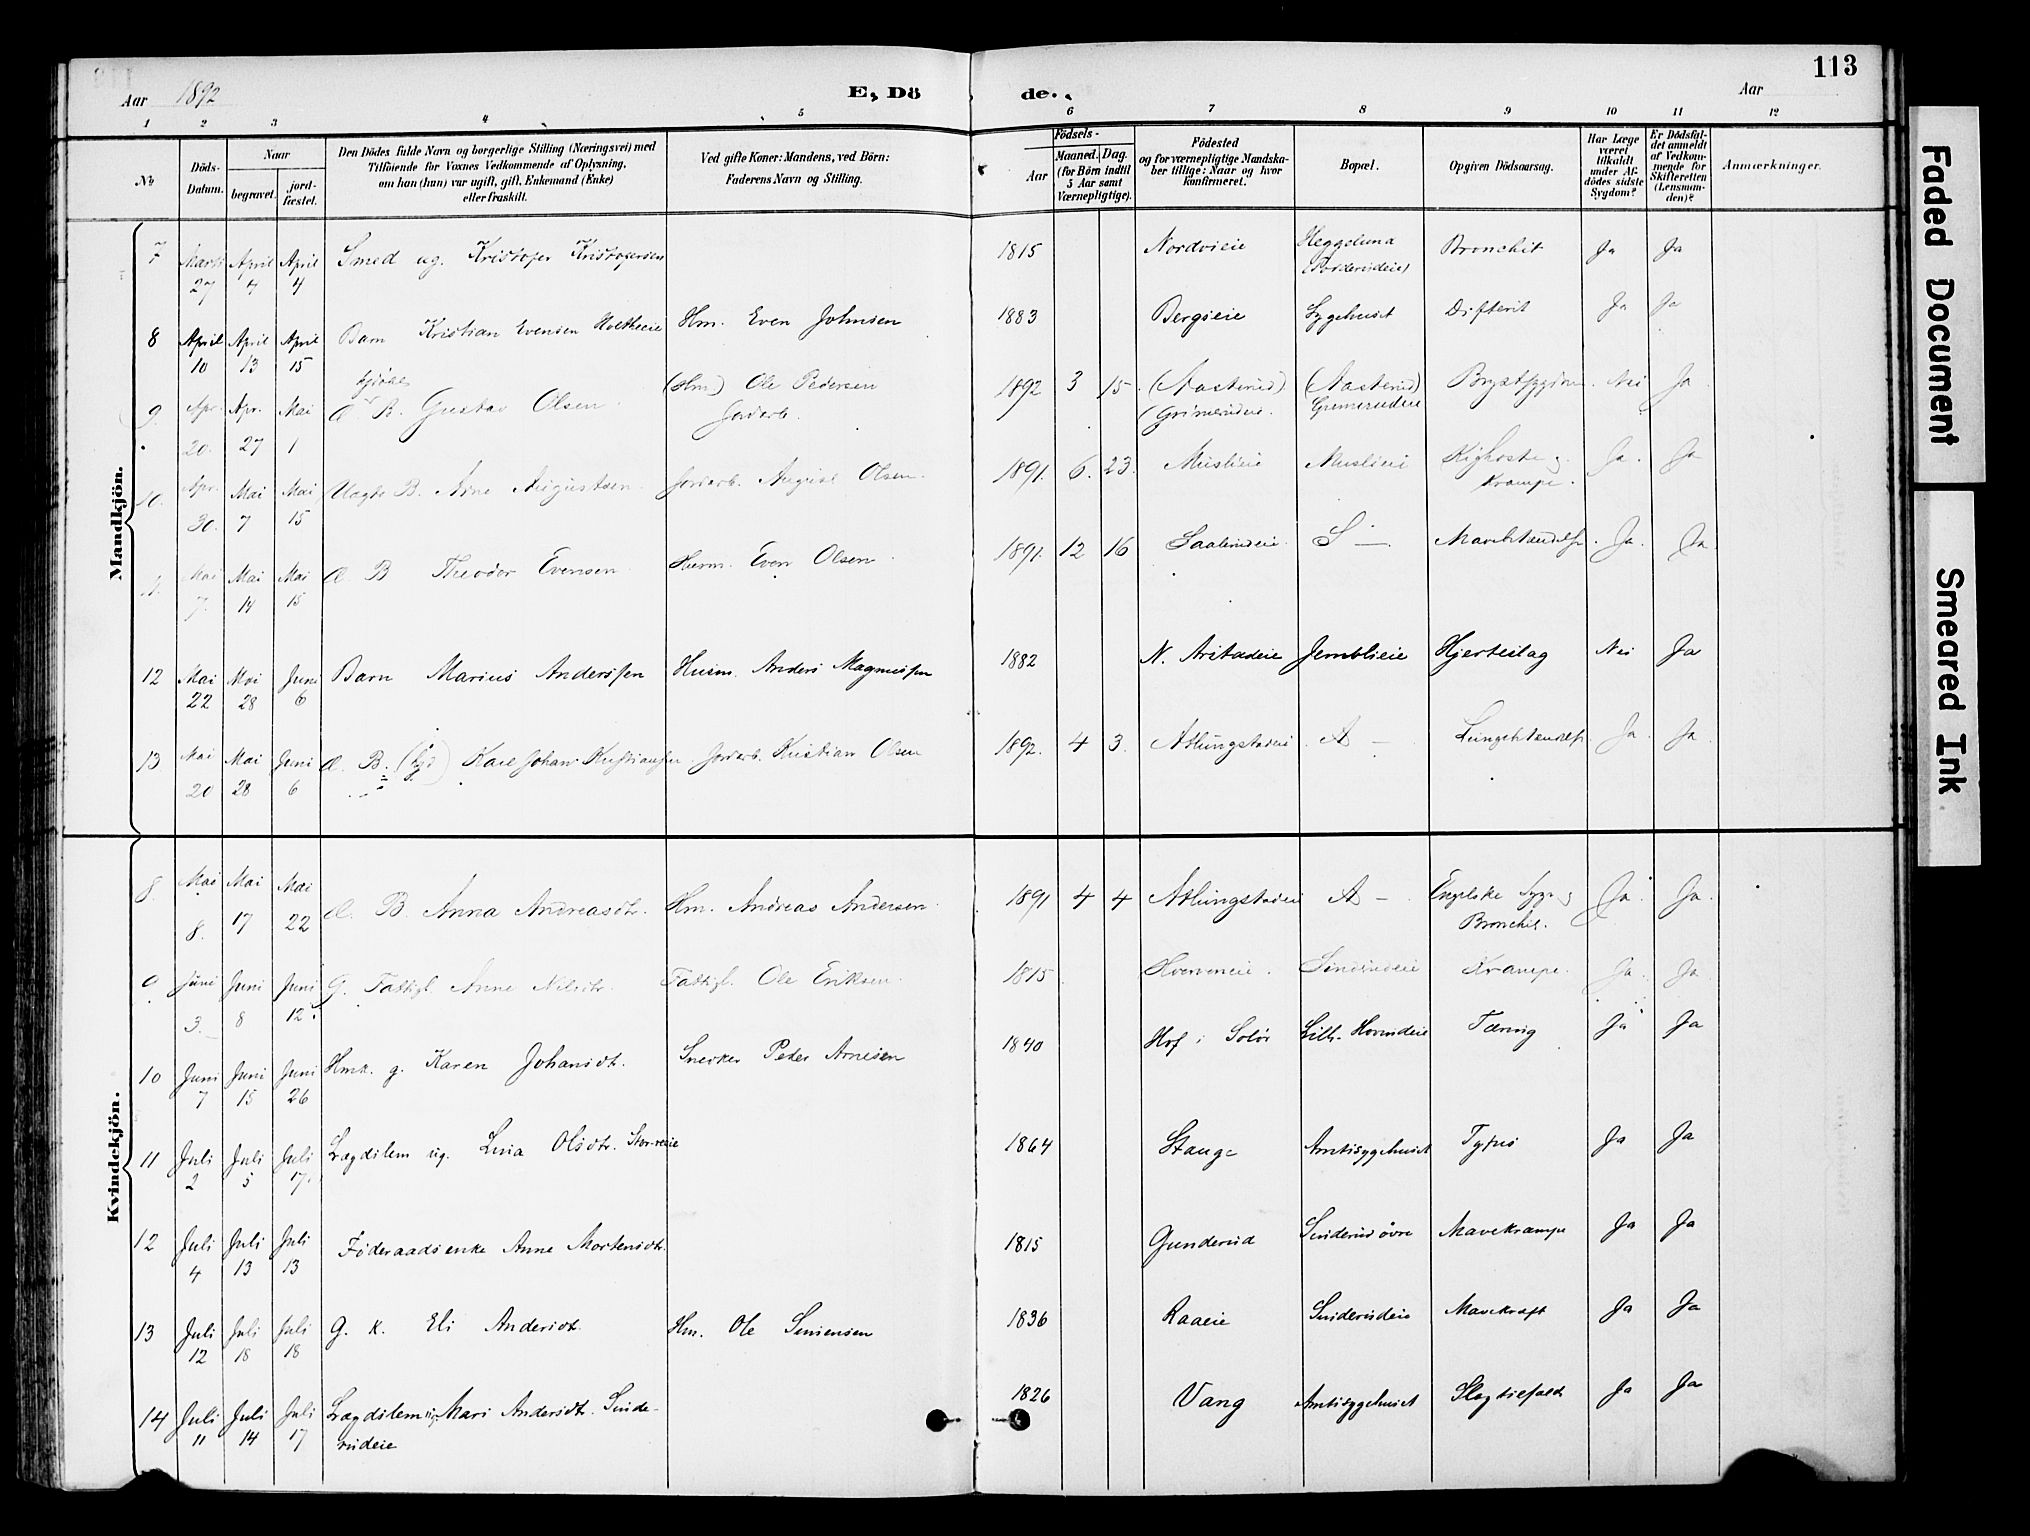 113
Aar 1892 E, Dö de. Aar
1 2 3 4 5 6 7 8 9 10 11 12
No
Döds-
Datum.
Naar
begravet.
jord-
fæstet.
Den Dödes fulde Navn og borgerlige Stilling (Næringsvei) med
Tilföiende for Voxnes Vedkommende af Oplysning,
om han (hun) var ugift, gift, Enkemand (Enke)
eller fraskilt.
Ved gifte Koner: Mandens, ved Börn:
Faderens Navn og Stilling.
Födsels-
Aar
Maaned. Dag.
(for Börn indtil
5 Aar samt
Værnepligtige).
Födested
og for værnepligtige Mandska-
ber tillige: Naar og hvor
konfirmeret.
Bopæl.
Opgiven Dödsaarsag.
Har Læge
været
tilkaldt
under Af-
dödes sidste
Sygdom?
Er Dödsfal-
det anmeldt
af Vedkom-
mende for
Skifteretten
(Lensman-
den)?
Anmærkninger.
Mandkjön.
7 Marts 27 April 4 April 4 Smed ug. Kristofer Kristofersen 1815 Nordvieie Heggelund Bronchit Ja Ja
8 April 10 April 13 April 15 Barn Kristian Evensen Hm. Even Johnsen 1883 Bergseie Sygehuset Difterit Ja Ja
9. Apr. 20. Apr. 27 Mai 1 B. Gustav Olsen (Hm.) Ole Pedersen
Jordarb. 1892 3 15 (Aasterud) (Aasterud) Brystsygdom Nei Ja
(Grimerudeie. Grimerudeie
10. Apr. 30. Mai 7 Mai 15 Uægte B. Arne Augustsen Jordarb. August Olsen. 1891. 6. 23. Muslieie Muslieie Kighoste og
Krampe. Ja. Ja
11. Mai 7. Mai 14 Mai 15 Æ. B Theodor Evensen Husm. Even Olsen 1891. 12 16 Saalerudeie S — Mavebetændelse. Ja. Ja.
12 Mai 22 Mai 28 Juni 6 Barn Marius Anderssen Husm. Anders Magnussen 1882 N. Arstadeie Jemblieie Hjerteslag Nei Ja
13 Mai 20 Mai 28 Juni 6 Æ. B. Karl Johan Kristiansen Jordarb. Kristian Olsen 1892. 4 3. Atlungstadeie A — Lungebetændelse. Ja. Ja.
Kvindekjön.
8. Mai 8. Mai 17 Mai 22 Æ. B. Anna Andreasdtr. Hm. Andreas Andersen 1891 4 4 Atlungstadeie A — Engelske Syge og
Bronchit. Ja. Ja.
9 Juni 3. Juni 8 Juni 12. G. Fattigl. Anne Nilsdtr. Fattigl. Ole Eriksen. 1815 Hverveneie. Sinderudeie Krampe. Ja. Ja.
10 Juni 7 Juni 15 Juni 26 Hmk. g. Karen Johansdtr. Snedker Peder Arnesen 1840 Hof i Solör Lill-Hovindeie Tæring Ja Ja
11 Juli 2 Juli 5 Juli 17. Lægdslem ug. Lina Olsdtr. 1864 Stange Amtssygehuset Tyfus Ja Ja
12 Juli 4 Juli 13 Juli 13 Föderaadsenke Anne Mortensdtr. 1815 Gunderud Sinderud övre Mavekrampe Ja Ja
13 Juli 12 Juli 18 Juli 18 G. k. Eli Andersdtr. Hm. Ole Simensen 1836 Raaeie Sinderudeie Mavekræft Ja Ja
14 Juli 11 Juli 14 Juli 17 Lægdslem ug. Mari Andersdtr. Sinde-
rudeie 1826 Vang Amtssygehuset Slagtilfælde Ja Ja
Faded Document
Smeared Ink